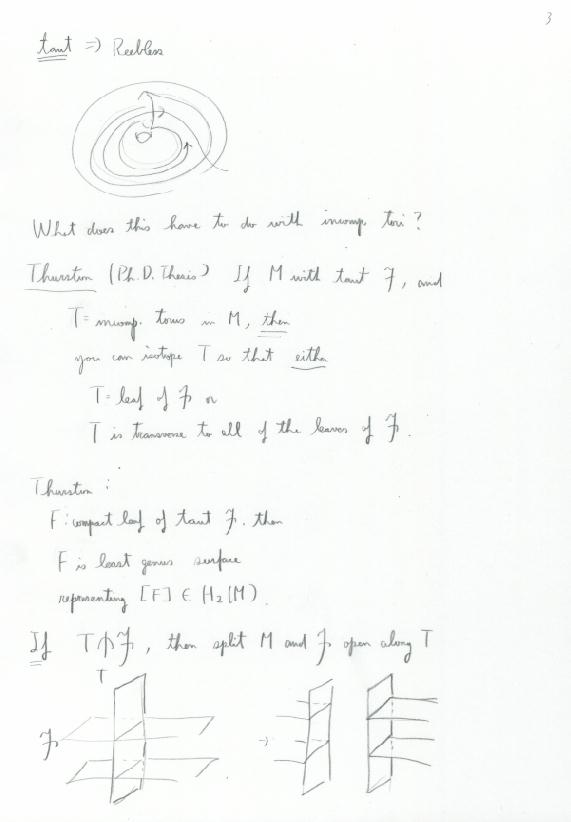 3
taut => Reebless
What does this have to do with incomp. tori?
Thurston (Ph.D. Thesis) If M with taut F, and
T = incomp. torus in M, then
you can isotope T so that either
T = leaf of F or
T is transverse to all of the leaves of F.
Thurston:
F: compact leaf of taut F. then
F is least genus surface
representing [F] ∈ H₂(M).
If T ⋔ F, then split M and F open along T
T
F
→